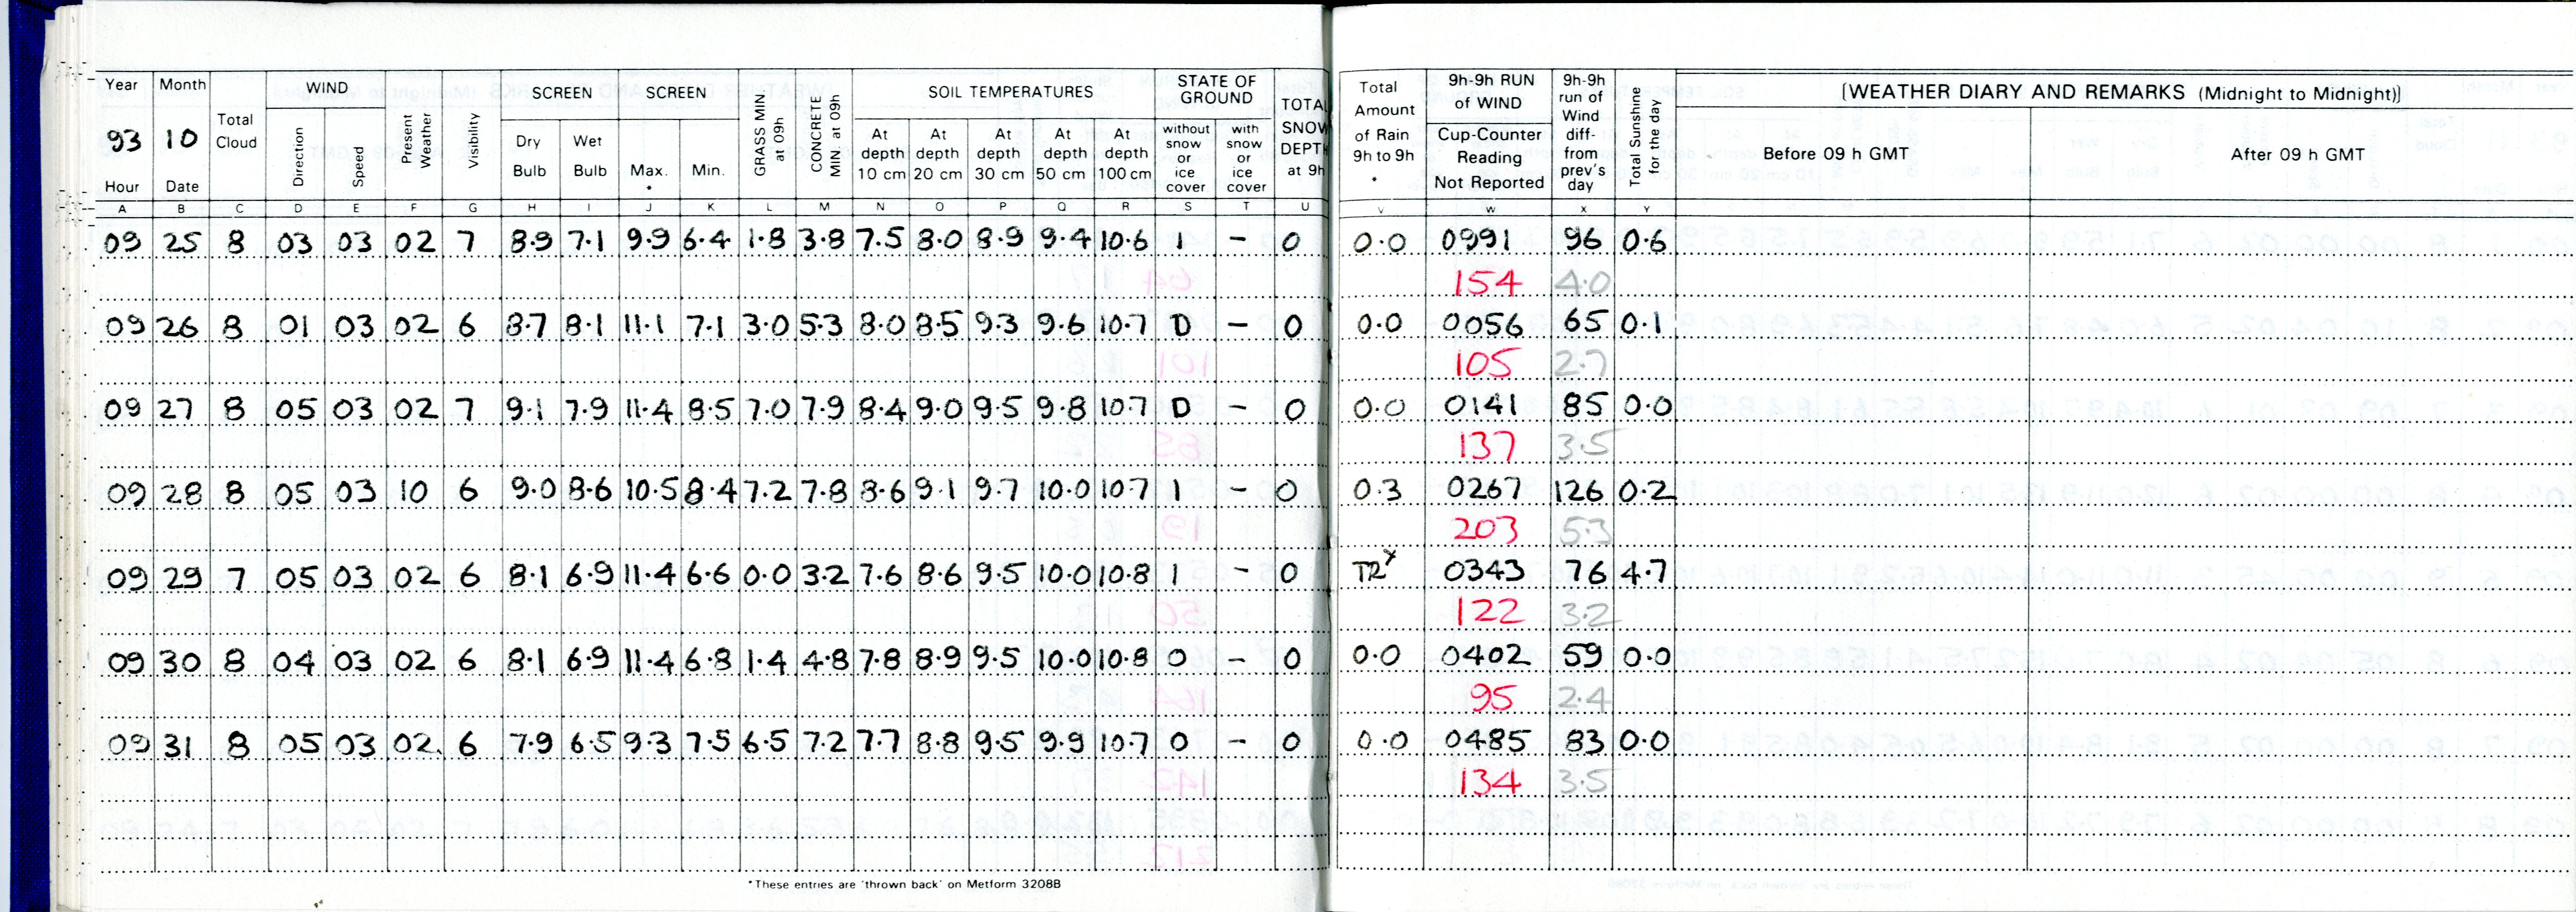 Year Month Total Cloud WIND Present Weather Visibility SCREEN SCREEN GRASS MIN at 09h CONCRETE MIN at 09h SOIL TEMPERATURES STATE OF GROUND TOTAL SNOW DEPTH at 9h Total Amount of Rain 9h to 9h * 9h-9h RUN of WIND 9h-9h run of Wind diff- from prev's day Total Sunshine for the day (WEATHER DIARY AND REMARKS (Midnight to Midnight))
93 10 Direction Speed Dry Bulb Wet Bulb Max. * Min. At depth 10 cm At depth 20 cm At depth 30 cm At depth 50 cm At depth 100 cm without snow or ice cover with snow or ice cover Cup-Counter Reading Not Reported Before 09 h GMT After 09 h GMT
Hour Date
A B C D E F G H I J K L M N O P Q R S T U V W X Y
09 25 8 03 03 02 7 8.9 7.1 9.9 6.4 1.8 3.8 7.5 8.0 8.9 9.4 10.6 1 - 0 0.0 0991 96 0.6
154 4.0
09 26 8 01 03 02 6 8.7 8.1 11.1 7.1 3.0 5.3 8.0 8.5 9.3 9.6 10.7 0 - 0 0.0 0056 65 0.1
105 2.7
09 27 8 05 03 02 7 9.1 7.9 11.4 8.5 7.0 7.9 8.4 9.0 9.5 9.8 10.7 0 - 0 0.0 0141 85 0.0
137 3.5
09 28 8 05 03 10 6 9.0 8.6 10.5 8.4 7.2 7.8 8.6 9.1 9.7 10.0 10.7 1 - 0 0.3 0267 126 0.2
203 5.3
09 29 7 05 03 02 6 8.1 6.9 11.4 6.6 0.0 3.2 7.6 8.6 9.5 10.0 10.8 1 - 0 TR 0343 76 4.7
122 3.2
09 30 8 04 03 02 6 8.1 6.9 11.4 6.8 1.4 4.8 7.8 8.9 9.5 10.0 10.8 0 - 0 0.0 0402 59 0.0
95 2.4
09 31 8 05 03 02 6 7.9 6.5 9.3 7.5 6.5 7.2 7.7 8.8 9.5 9.9 10.7 0 - 0 0.0 0485 83 0.0
134 3.5
*These entries are 'thrown back' on Metform 3208B